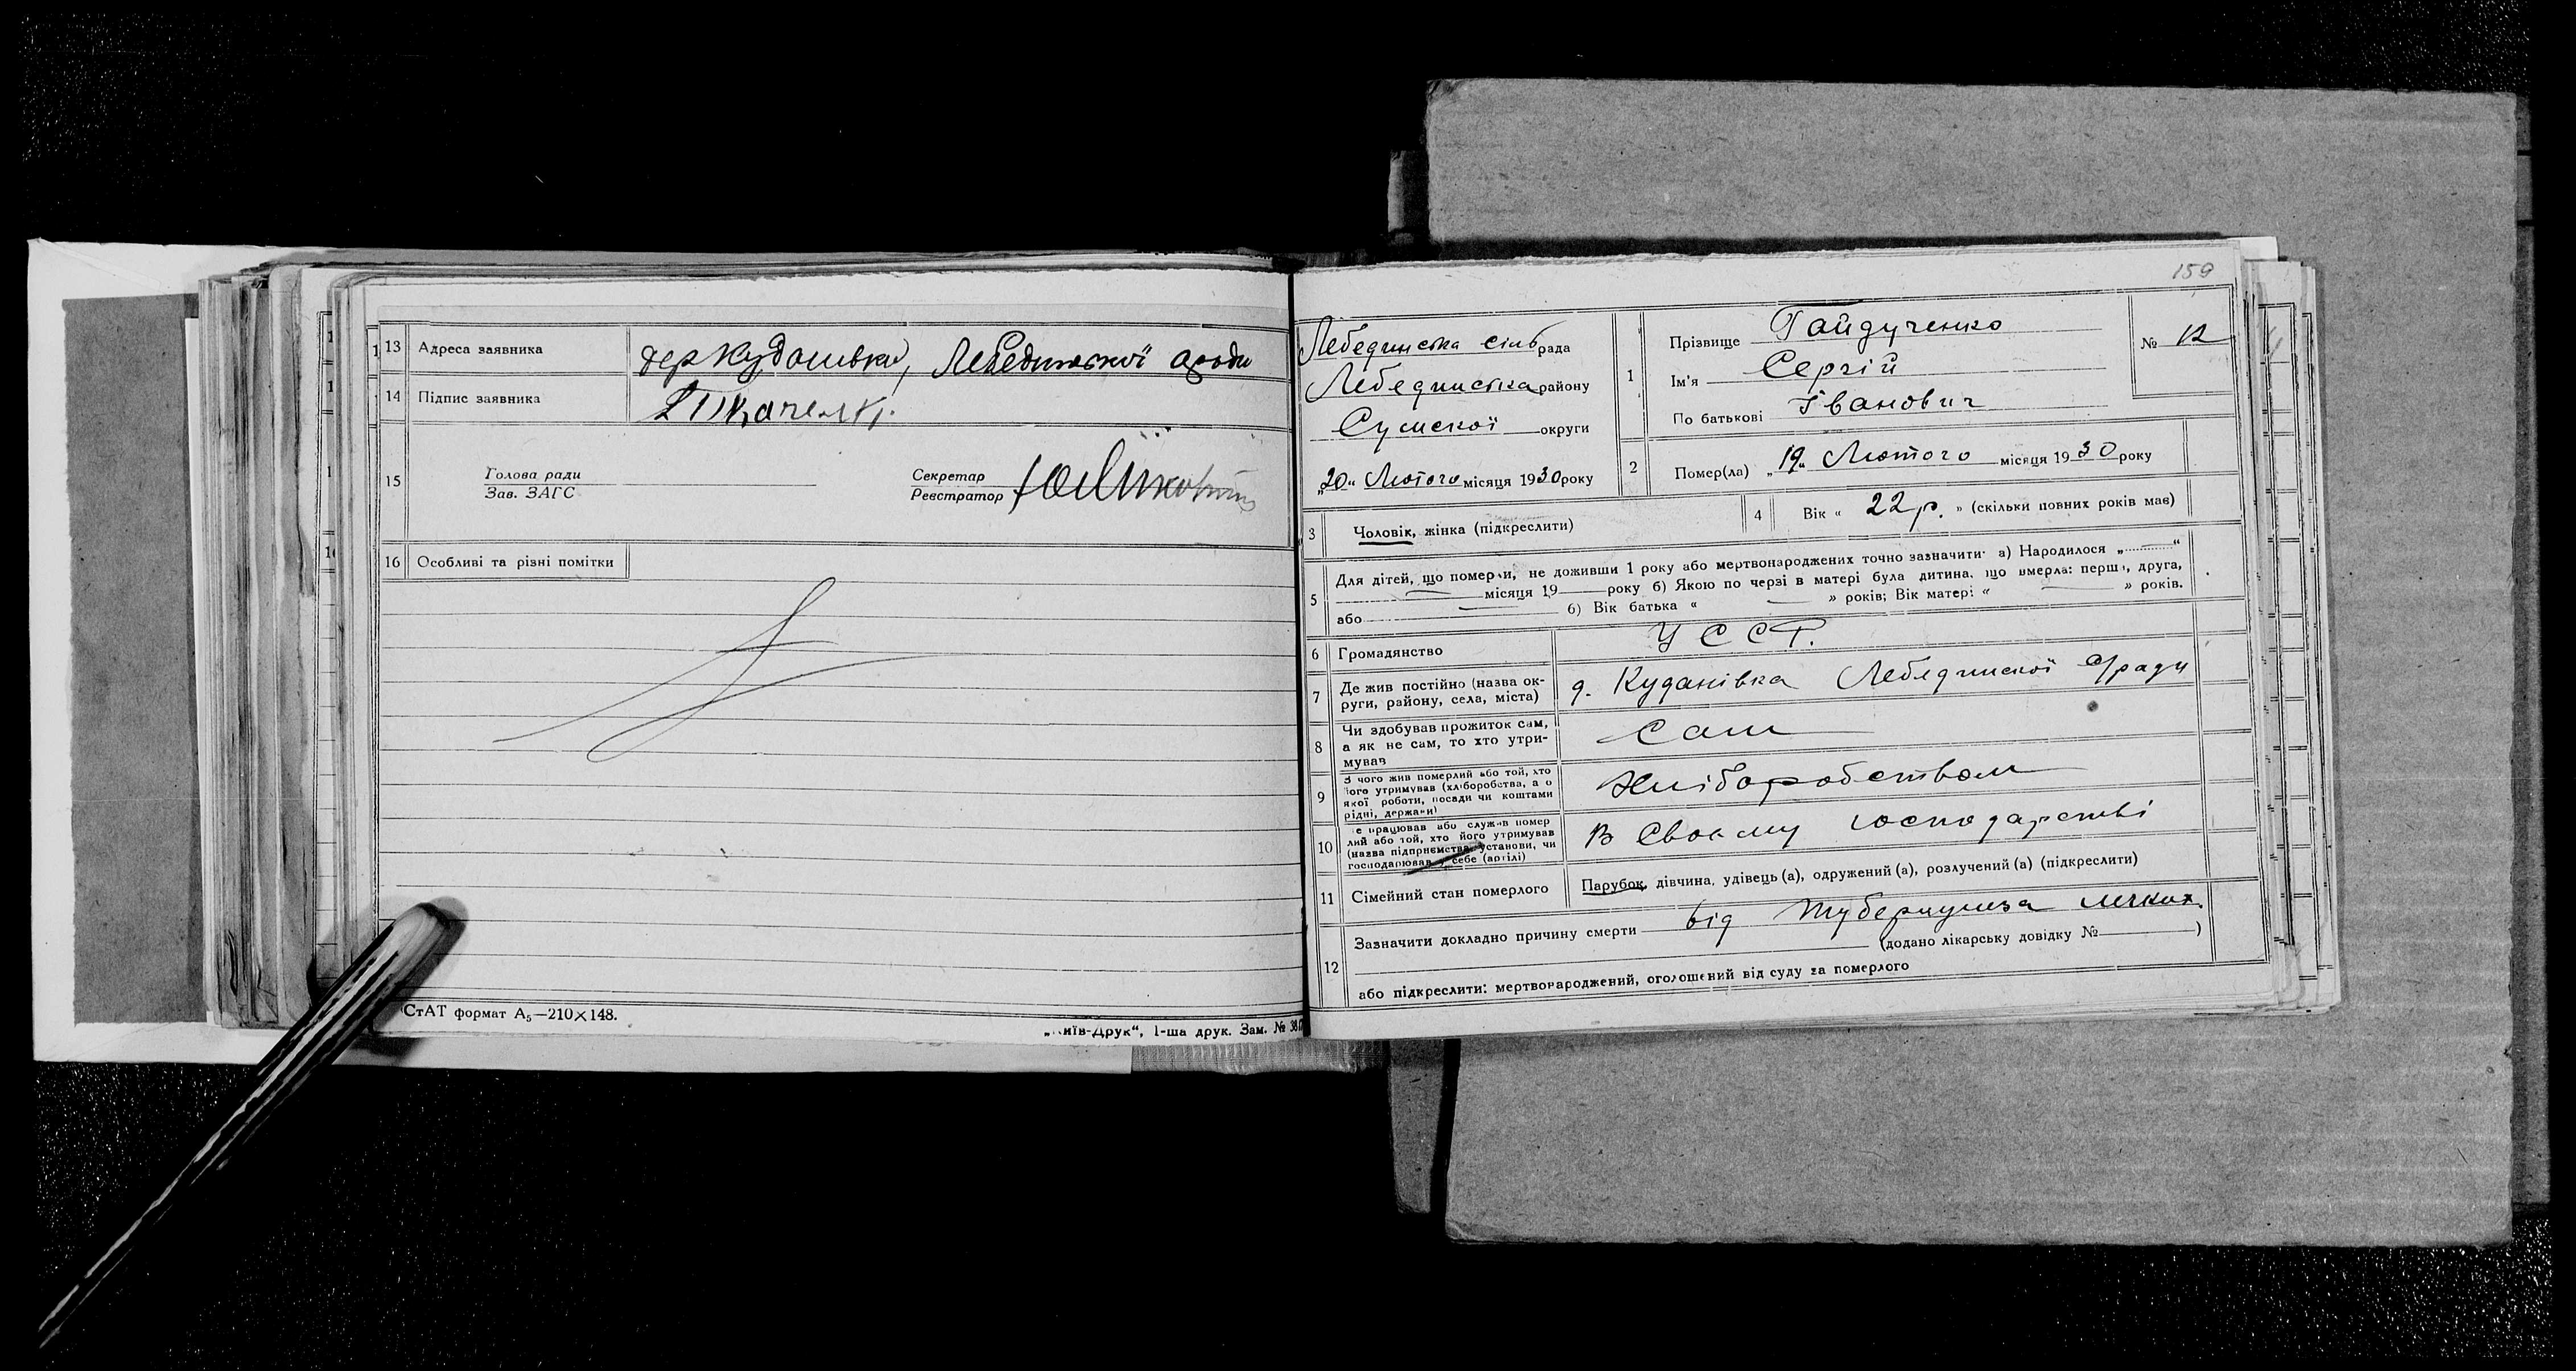 13 Адреса заявника дер Кудановка, Лебединської с/ради
14 Підпис заявника Ткаченк
15 Голова ради
Зав. ЗАГС
Секретар
Реєстратор
16 Особливі та різні помітки
СтАТ формат А₅—210×148.
„Київ-Друк“, 1-ша друк. Зам. №
159
Лебединська сільрада
Лебединська району
Сумської округи
„20“ Лютого місяця 1930 року
1 Прізвище Гайдученко
Ім'я Сергій
По батькові Іванович
№ 12
2 Помер(ла) „19“ Лютого місяця 1930 року
3 Чоловік, жінка (підкреслити)
4 Вік « 22 р. » (скільки повних років має)
5 Для дітей, що померли, не доживши 1 року або мертвонароджених точно зазначити: а) Народилося „ “
місяця 19 року б) Якою по черзі в матері була дитина, що вмерла: перша, друга,
або б) Вік батька « » років; Вік матері « » років.
6 Громадянство УССР.
7 Де жив постійно (назва ок-
руги, району, села, міста) д. Куданівка Лебединської с/ради
8 Чи здобував прожиток сам,
а як не сам, то хто утри-
мував Сам
9 З чого жив померлий або той, хто
його утримував (хліборобства, а о
якої роботи, посади чи коштами
рідні, держави) Хліборобством
10 Де працював або служив помер
лий або той, хто його утримував
(назва підприємства, установи, чи
господарював у себе (артілі) В Своєму господарстві
11 Сімейний стан померлого Парубок, дівчина, удівець (а), одружений (а), розлучений (а) (підкреслити)
12 Зазначити докладно причину смерти від туберкульоза легких.
(додано лікарську довідку № )
або підкреслити: мертвонароджений, оголошений від суду за померлого